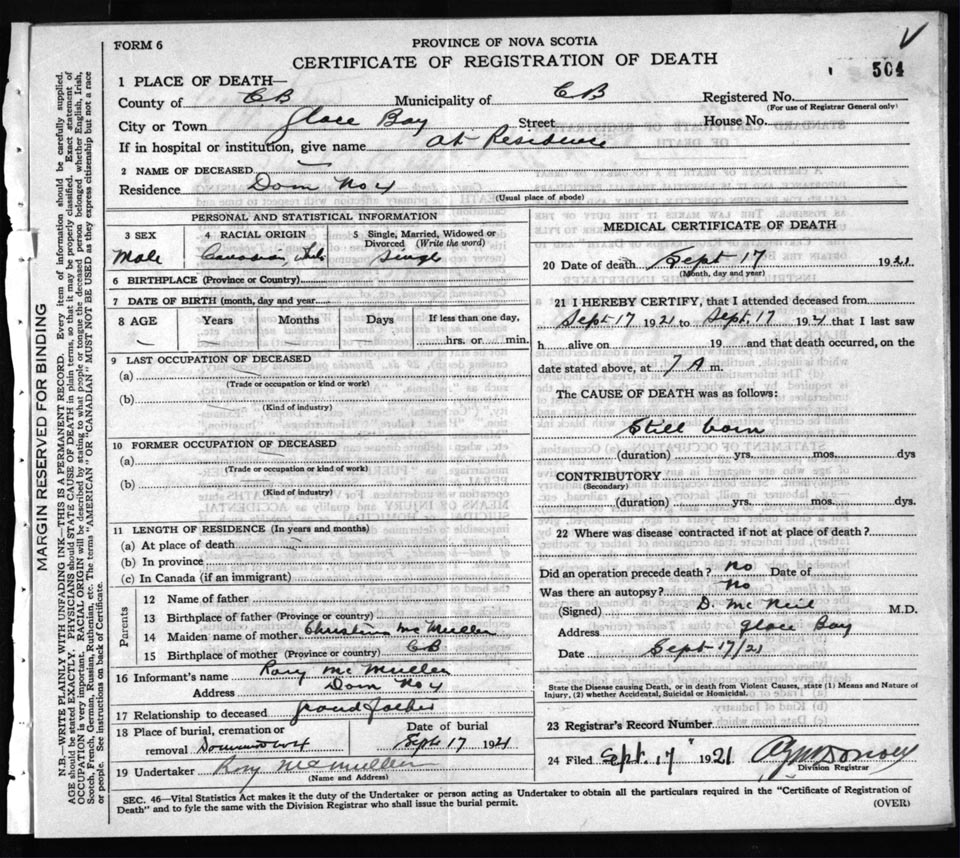 FORM 6
PROVINCE OF NOVA SCOTIA
CERTIFICATE OF REGISTRATION OF DEATH
504
1 PLACE OF DEATH—
County of CB Municipality of CB Registered No.
(For use of Registrar General only)
City or Town Glace Bay Street House No.
If in hospital or institution, give name at Residence
2 NAME OF DECEASED
Residence Dom No 4
(Usual place of abode)
PERSONAL AND STATISTICAL INFORMATION
3 SEX
Male
4 RACIAL ORIGIN
Canadian
5 Single, Married, Widowed or Divorced (Write the word)
Single
6 BIRTHPLACE (Province or Country)
7 DATE OF BIRTH (month, day and year)
8 AGE Years Months Days If less than one day,
hrs. or min.
9 LAST OCCUPATION OF DECEASED
(a)
(Trade or occupation or kind or work)
(b)
(Kind of industry)
10 FORMER OCCUPATION OF DECEASED
(a)
(Trade or occupation or kind of work)
(b)
(Kind of industry)
11 LENGTH OF RESIDENCE (In years and months)
(a) At place of death
(b) In province
(c) In Canada (if an immigrant)
Parents
12 Name of father
13 Birthplace of father (Province or country)
14 Maiden name of mother Christina McMullen
15 Birthplace of mother (Province or country) CB
16 Informant's name Rory McMullen
Address Dom No 4
17 Relationship to deceased grandfather
18 Place of burial, cremation or removal
Date of burial
Sept 17 1921
19 Undertaker Rory McMullen
(Name and Address)
MEDICAL CERTIFICATE OF DEATH
20 Date of death Sept 17 1921
(Month, day and year)
21 I HEREBY CERTIFY, that I attended deceased from
Sept 17 1921 to Sept. 17 1921 that I last saw
h alive on 19 and that death occurred, on the
date stated above, at 7 A m.
The CAUSE OF DEATH was as follows:
Still born
(duration) yrs. mos. dys
CONTRIBUTORY
(Secondary)
(duration) yrs. mos. dys.
22 Where was disease contracted if not at place of death?
Did an operation precede death? No Date of
Was there an autopsy? No
(Signed) D. McNeil M.D.
Address Glace Bay
Date Sept 17/21
State the Disease causing Death, or in death from Violent Causes, state (1) Means and Nature of
Injury, (2) whether Accidental, Suicidal or Homicidal.
23 Registrar's Record Number
24 Filed Sept. 17 1921
Division Registrar
SEC. 46—Vital Statistics Act makes it the duty of the Undertaker or person acting as Undertaker to obtain all the particulars required in the "Certificate of Registration of
Death" and to fyle the same with the Division Registrar who shall issue the burial permit.
(OVER)
MARGIN RESERVED FOR BINDING
N.B.—WRITE PLAINLY WITH UNFADING INK—THIS IS A PERMANENT RECORD. Every item of information should be carefully supplied.
AGE should be stated EXACTLY. PHYSICIANS should STATE CAUSE OF DEATH in plain terms, so that it may be properly classified. Exact statement of
OCCUPATION is very important. RACIAL ORIGIN will be described by stating to what people or tongue the deceased person belonged whether English, Irish,
Scotch, French, German, Russian, Ruthenian, etc. The terms "AMERICAN" OR "CANADIAN" MUST NOT BE USED as they express citizenship but not a race
or people. See instructions on back of Certificate.